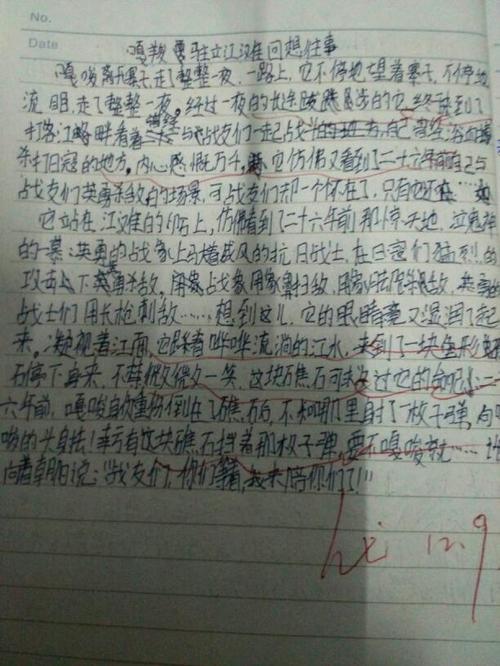 No.
Date
嘎羧 站立江滩回想往事
嘎羧离开寨子,走了整整一夜,一路上,它不停地望着寨子,不停地
流眼,走了整整一夜。经过一夜的长途跋 的它,终 到了
打洛江畔看着 与战友们一起战斗的地方,自己 浴血
杀打日寇的地方。内心感慨万千, 它仿佛又看到了二十六年前自己与
战友们英勇杀敌的场景,可战友们却一个不在了,只有它还在
它站在江滩的 石上,仿佛看到了二十六年前那惊天地,泣鬼神
的一幕:英勇的战象上 着威风的抗日战士,在日寇们猛烈的
攻击下英勇杀敌。用象 用象鼻扫敌,用象 杀敌,英勇的
战士们用长枪刺敌……想到这儿,它的眼睛竟又湿润了起
来。凝视着江面,它踩着哗哗流淌的江水,来到了一块 形
石停下身来,不禁微微一笑,这块礁石可 过它的命呢!二十
六年前,嘎羧身负重伤倒在了礁石后,不知哪里射了一枚子弹,向
羧的头身去!幸亏有这块礁石挡着那枚子弹,要不嘎羧就……
向着朝阳说:“战友们,你们等着,我来陪你们了!”
12.9